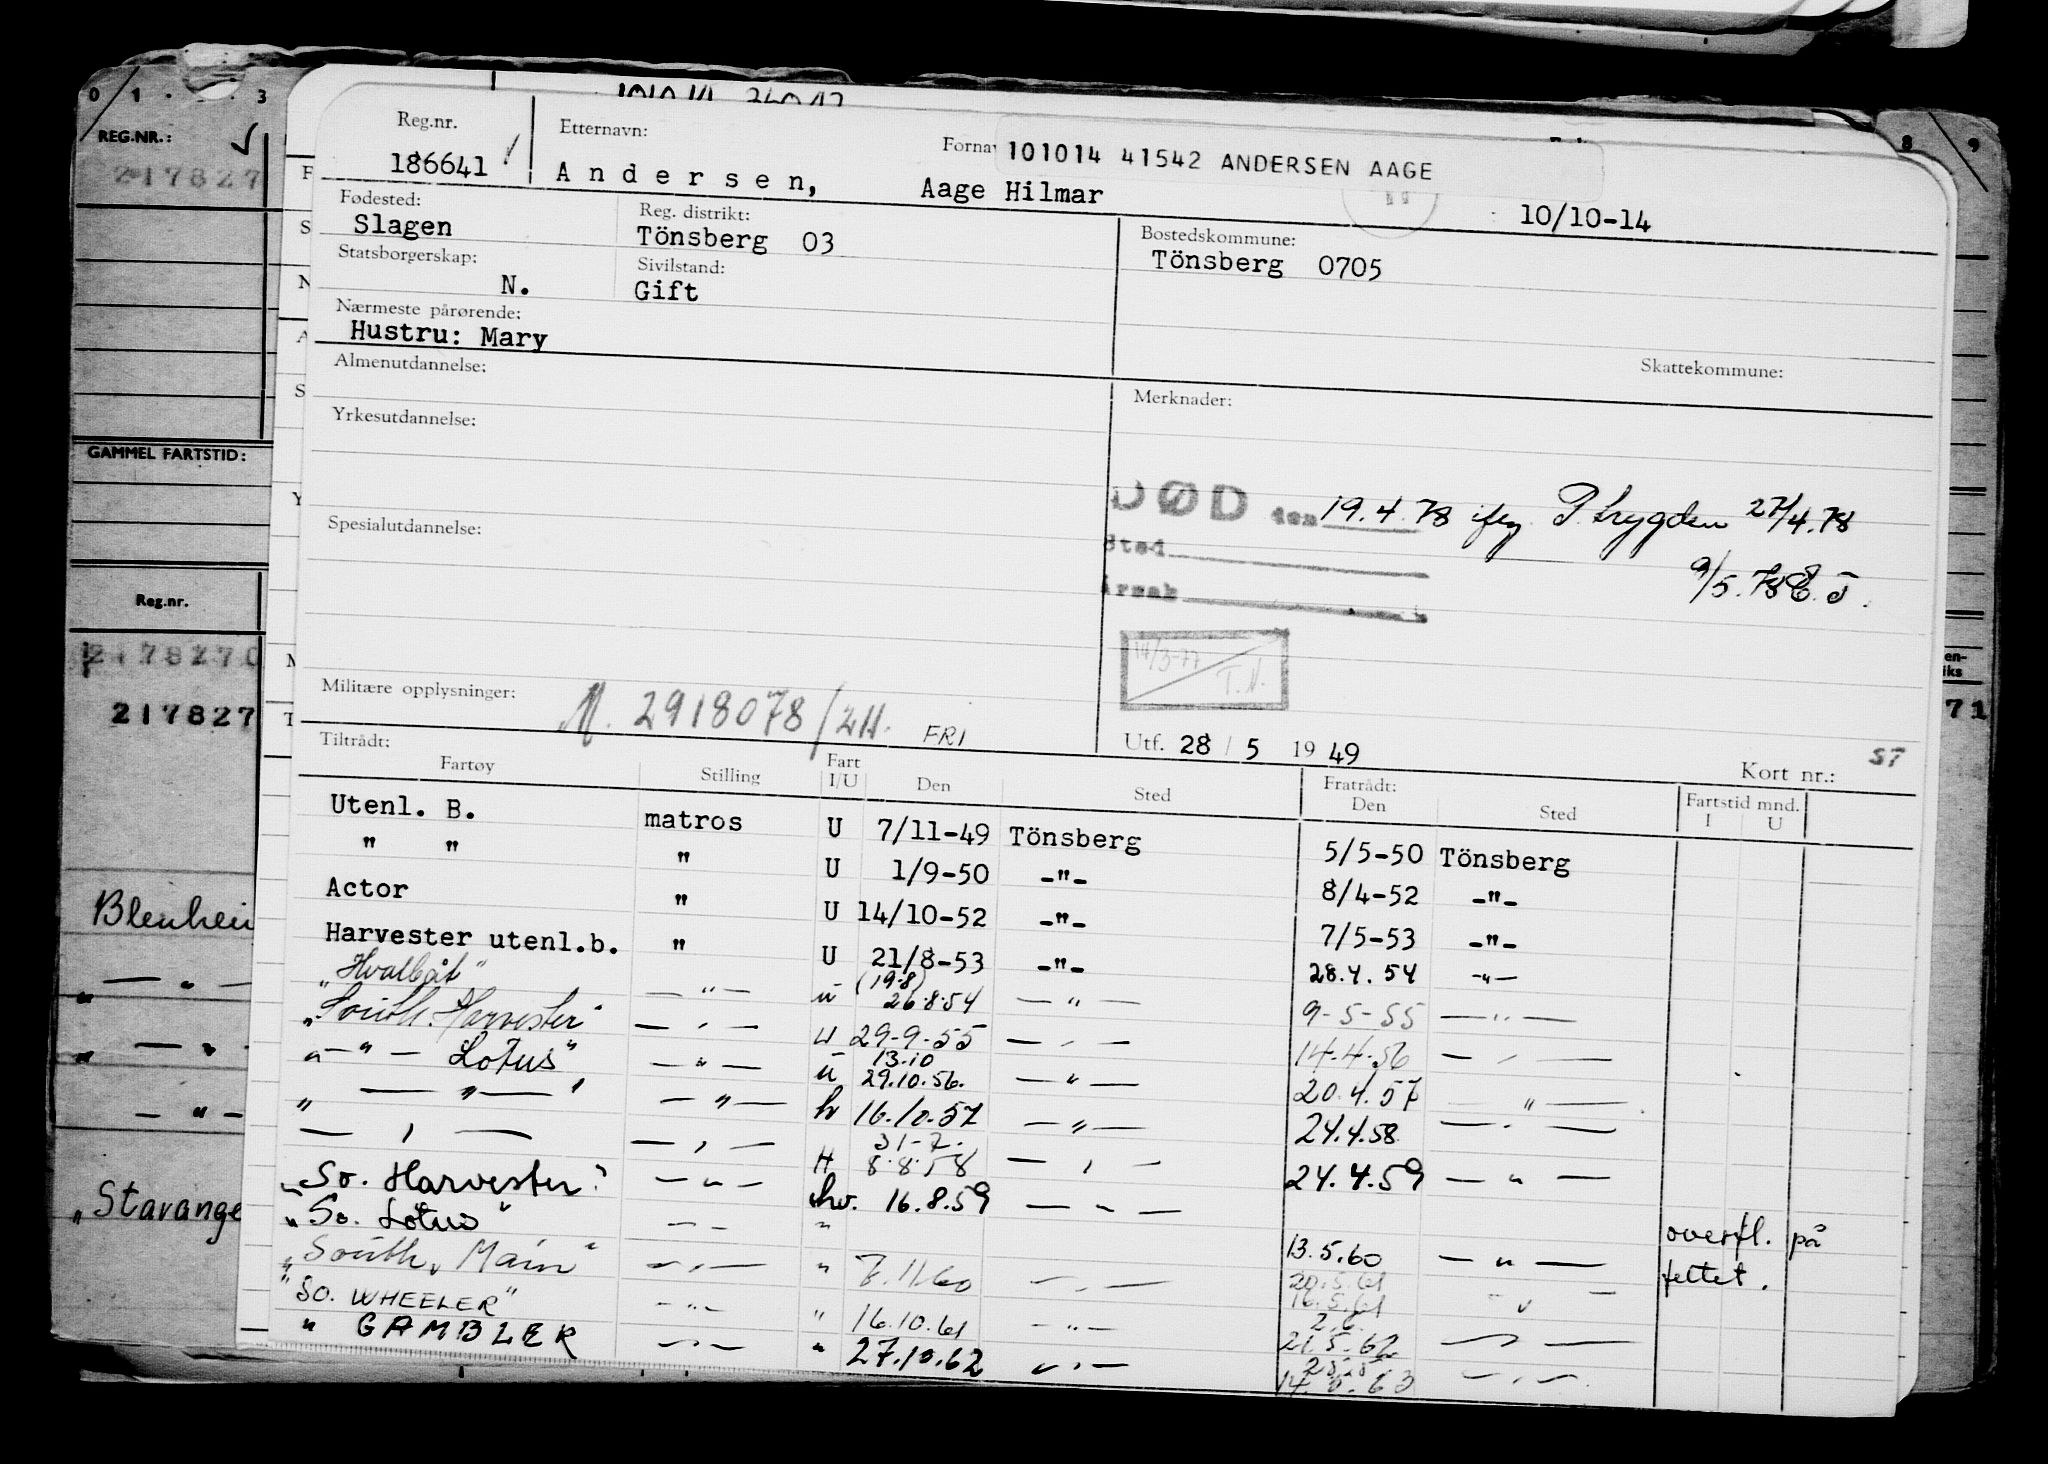 0 1 . . . 3
REG.NR.:
217827
GAMMEL FARTSTID:
Reg.nr.
2178270
217827
Blenhei
— " —
— " —
— " —
"Stavange
8 9
71
Reg.nr.
186641
Etternavn:
Andersen,
Fornav
Aage Hilmar
101014 41542 ANDERSEN AAGE
10/10-14
Fødested:
Slagen
Reg. distrikt:
Tönsberg 03
Bostedskommune:
Tönsberg 0705
Statsborgerskap:
N.
Sivilstand:
Gift
Nærmeste pårørende:
Hustru: Mary
Skattekommune:
Almenutdannelse:
Merknader:
Yrkesutdannelse:
DØD den 19.4.78 iføg. P. trygden 27/4.78
Sted
9/5.78 E.J.
Årsak
Spesialutdannelse:
14/3-77 T.N.
Militære opplysninger:
M. 2918078/2H. FRI
Utf. 28 / 5 19 49
Kort nr.: 57
Tiltrådt:
Fartøy Stilling Fart I/U Den Sted Fratrådt: Den Sted Fartstid mnd. I U
Utenl. B. matros U 7/11-49 Tönsberg 5/5-50 Tönsberg
" " " U 1/9-50 -"- 8/4-52 -"-
Actor " U 14/10-52 -"- 7/5-53 -"-
Harvester utenl.b. " U 21/8-53 -"- 28.4.54 -"-
"Hvalbåt" — " — u (19.8) 26.8.54 — " — 9-5-55 — " —
"South. Harvester" — " — U 29-9-55 — " — 14.4.56 — " —
" — " — Lotus" — " — u 13.10 29.10.56. — " — 20.4.57 — " —
" — " — " — " — hv 16.10.57 — " — 24.4.58 — " —
— " — — " — H 31-7. 8.8.58 — " — 24.4.59 — " —
"So. Harvester" — " — hv. 16.8.59 — " —
"So. Lotus" — " — " 13.5.60 — " — overfl. på feltet.
"South. Main" — " — " 7.11.60 — " — 20.5.61 16.5.61 — " —
"So. WHEELER" — " — " 16.10.61 — " — 2.6. 21.5.62 — " —
" GAMBLER — " — " 27.10.62 — " — — " —